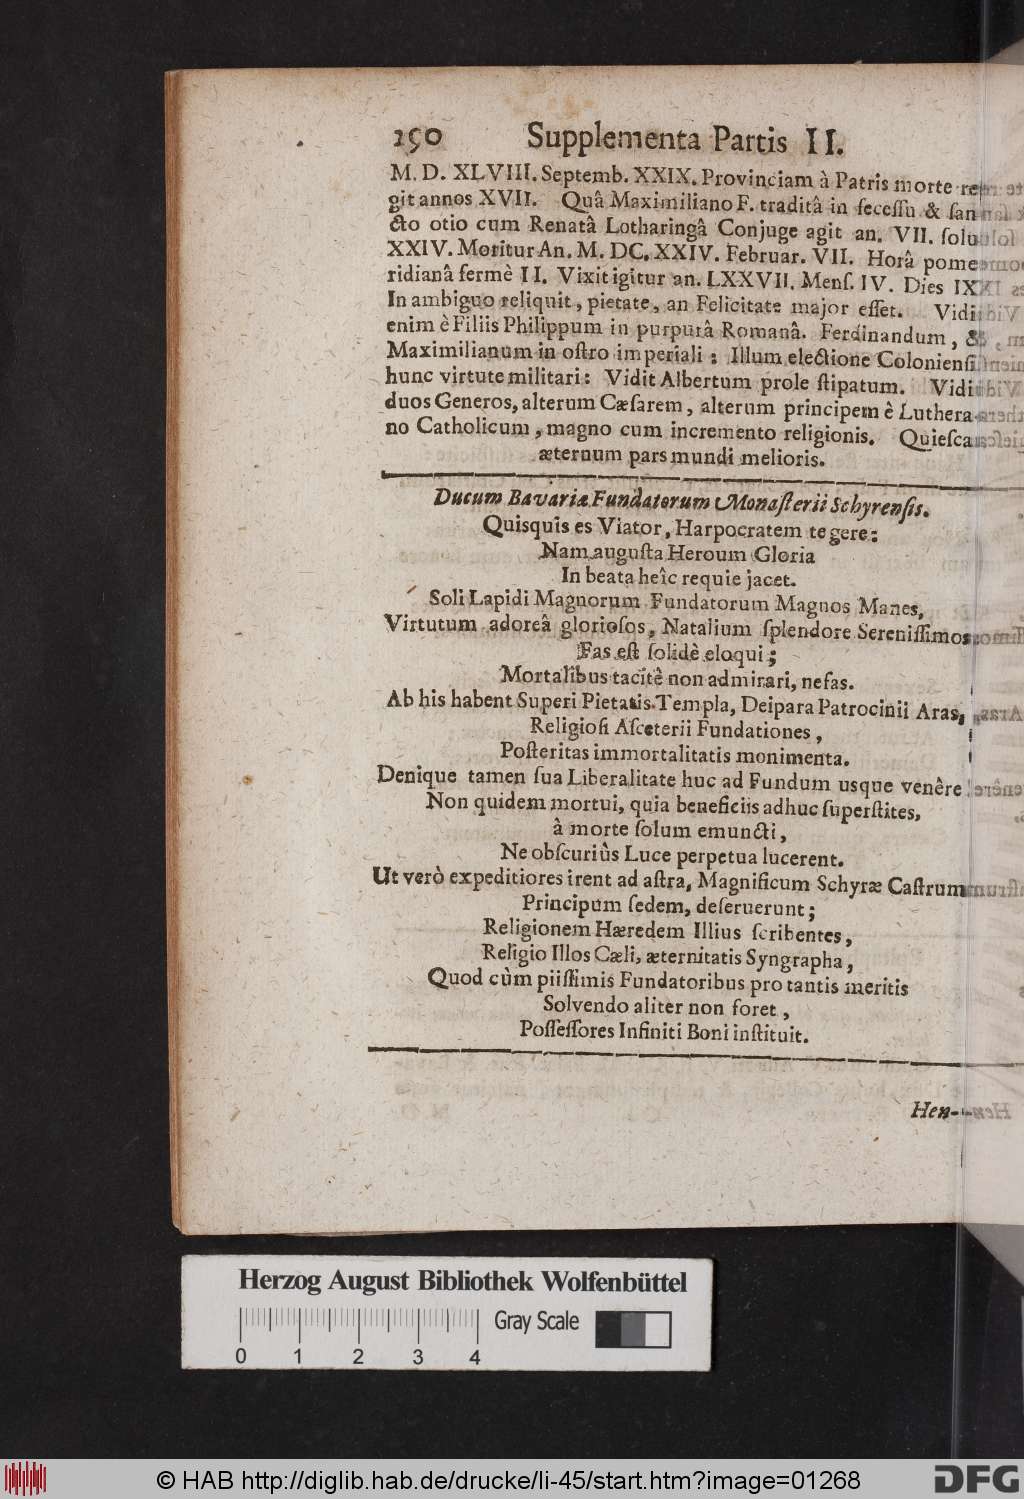 250 Supplementa Partis II.
M. D. XLVIII. Septemb. XXIX. Provinciam à Patris morte re-
git annos XVII. Quâ Maximiliano F. traditâ in ſeceſſu & ſan-
cto otio cum Renatâ Lotharingâ Conjuge agit an. VII. ſolu
XXIV. Moritur An. M. DC. XXIV. Februar. VII. Horâ pome-
ridianâ fermè II. Vixit igitur an. LXXVII. Menſ. IV. Dies IX
In ambiguo reliquit, pietate, an Felicitate major eſſet. Vidit
enim è Filiis Philippum in purpurâ Romanâ. Ferdinandum, &
Maximilianum in oſtro imperiali: Illum electione Colonienſi
hunc virtute militari: Vidit Albertum prole ſtipatum. Vidit
duos Generos, alterum Cæſarem, alterum principem è Luthera-
no Catholicum, magno cum incremento religionis. Quieſca
æternum pars mundi melioris.
Ducum Bavariæ Fundatorum Monaſterii Schyrenſis.
Quisquis es Viator, Harpocratem te gere:
Nam auguſta Heroum Gloria
In beata heîc requie jacet.
Soli Lapidi Magnorum Fundatorum Magnos Manes,
Virtutum adoreâ glorioſos, Natalium ſplendore Sereniſſimos
Fas eſt ſolidè eloqui;
Mortalibus tacitè non admirari, nefas.
Ab his habent Superi Pietatis Templa, Deipara Patrocinii Aras,
Religioſi Aſceterii Fundationes,
Poſteritas immortalitatis monimenta.
Denique tamen ſua Liberalitate huc ad Fundum usque venêre
Non quidem mortui, quia beneficiis adhuc ſuperſtites,
à morte ſolum emuncti,
Ne obſcuriùs Luce perpetua lucerent.
Ut verò expeditiores irent ad aſtra, Magnificum Schyræ Caſtrum
Principum ſedem, deſeruerunt;
Religionem Hæredem Illius ſcribentes,
Religio Illos Cæli, æternitatis Syngrapha,
Quod cùm piiſſimis Fundatoribus pro tantis meritis
Solvendo aliter non foret,
Poſſeſſores Infiniti Boni inſtituit.
Hen-
Herzog August Bibliothek Wolfenbüttel
Gray Scale
0 1 2 3 4
© HAB http://diglib.hab.de/drucke/li-45/start.htm?image=01268
DFG